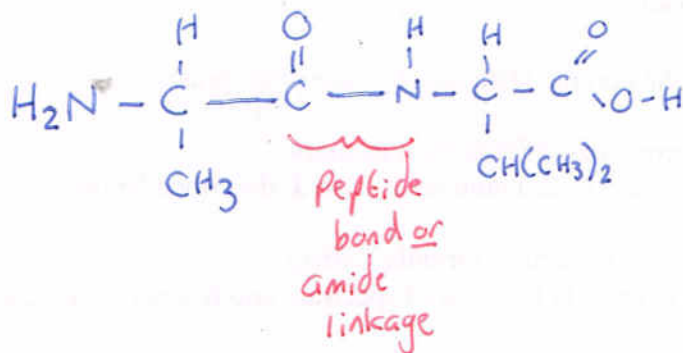 H O H H O
H₂N – C – C – N – C – C
O–H
CH₃ CH(CH₃)₂
peptide
bond or
amide
linkage